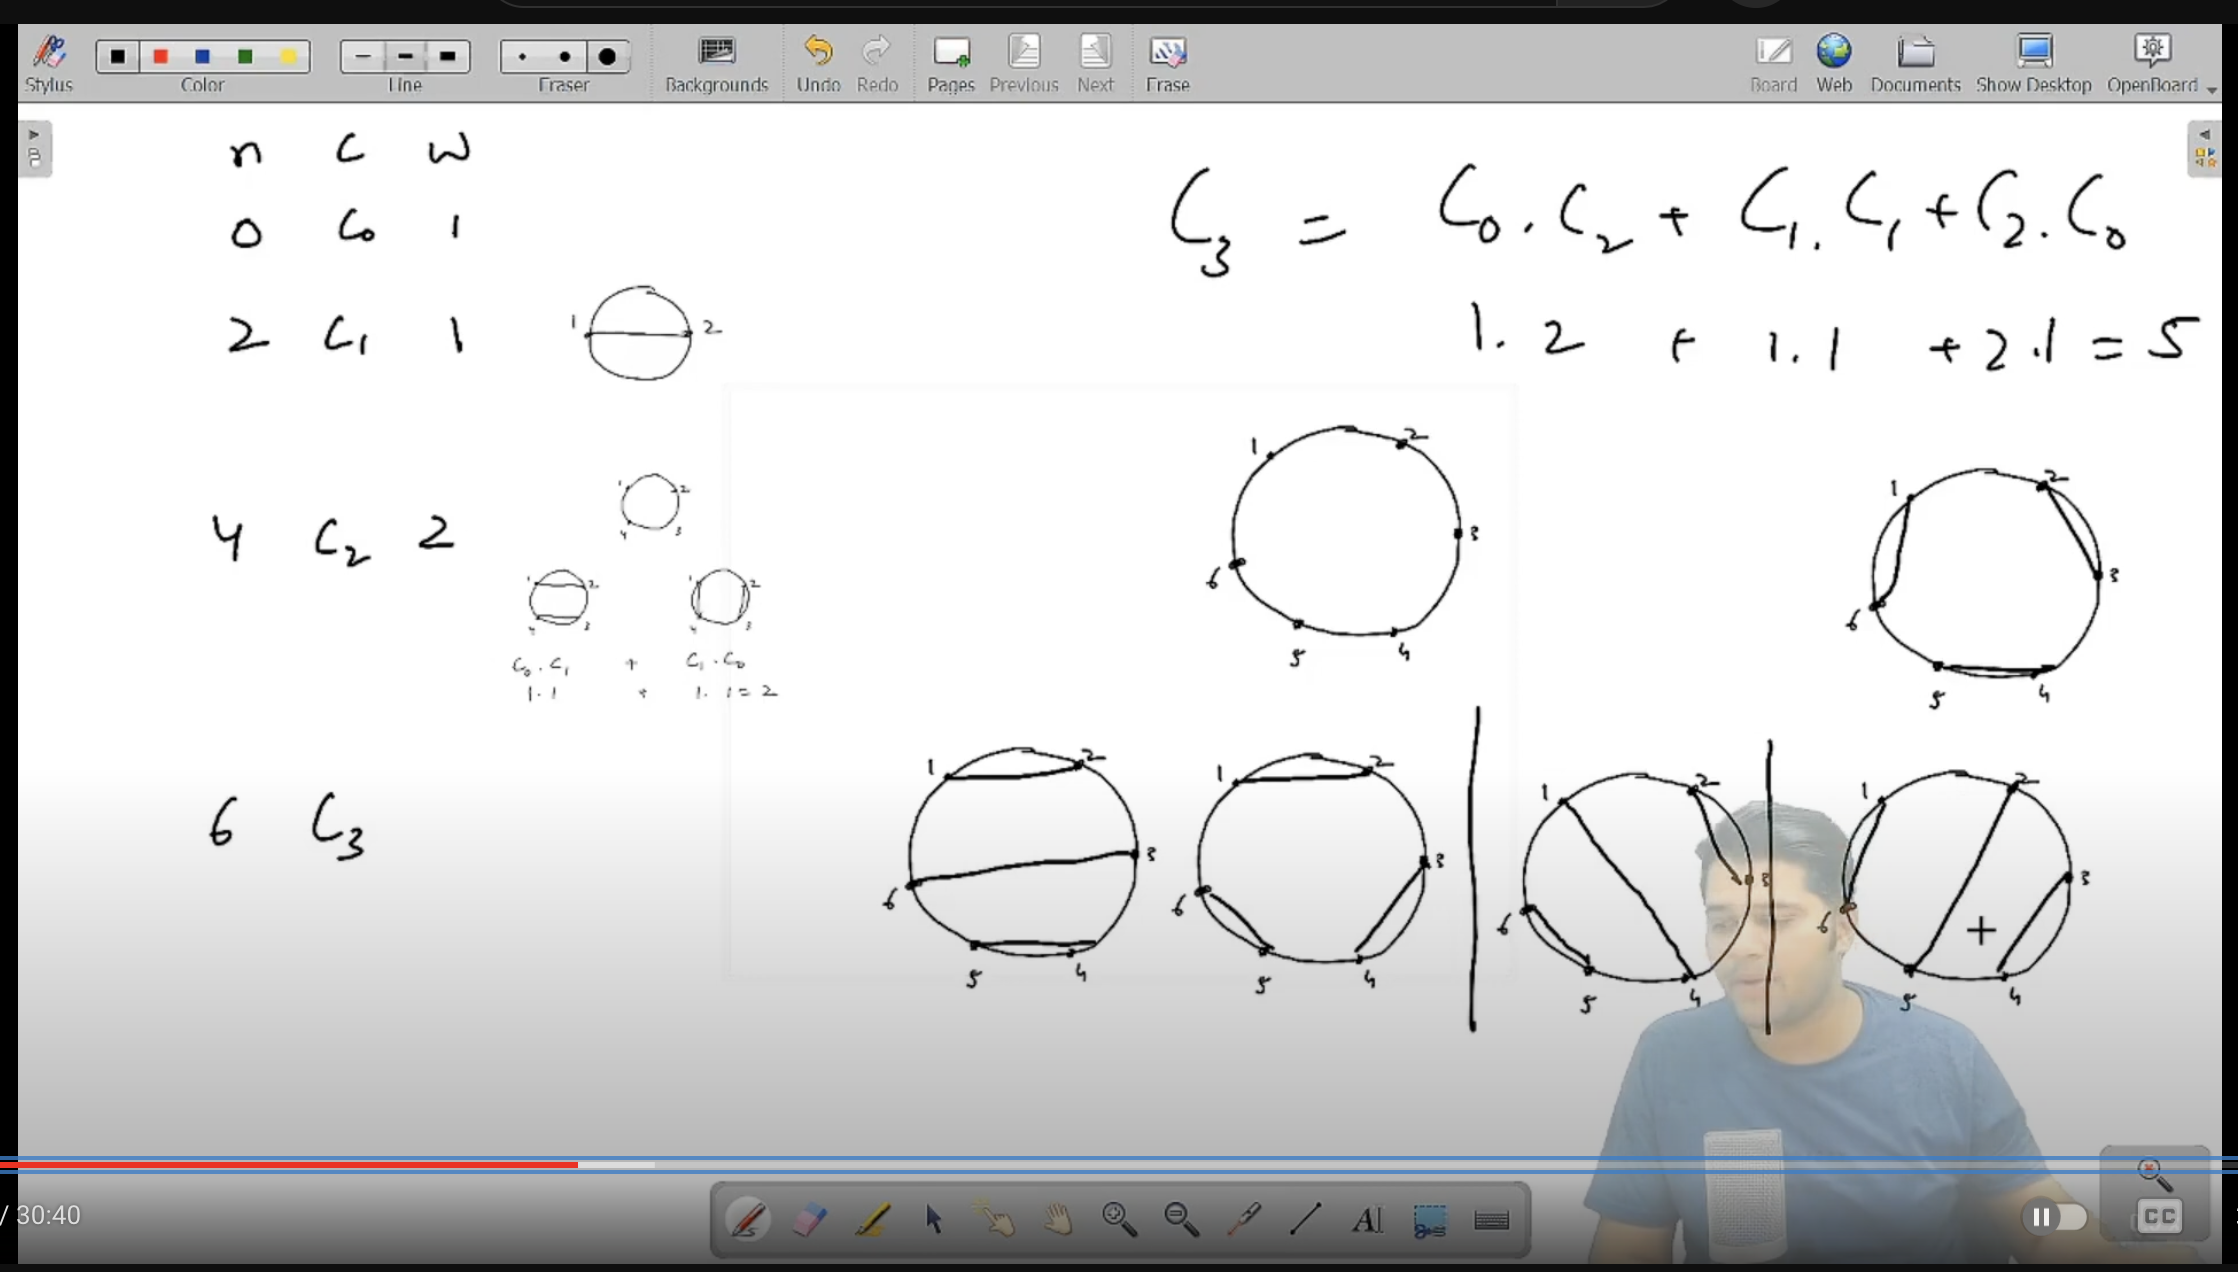 Stylus Color Line Eraser Backgrounds Undo Redo Pages Previous Next Erase Board Web Documents Show Desktop OpenBoard
n C W
0 C₀ 1
2 C₁ 1
1 2
C₃ = C₀ . C₂ + C₁ . C₁ + C₂ . C₀
1. 2 + 1. 1 + 2 .1 = 5
4 C₂ 2
1 2
4 3
1 2
4 3
1 2
4 3
C₀ . C₁ + C₁ . C₀
1. 1 + 1. 1 = 2
1 2
3
6
5 4
1 2
3
6
5 4
6 C₃
1 2
3
6
5 4
1 2
3
6
5 4
1 2
3
6
5 4
1 2
3
6
5 4
/ 30:40
AI
CC